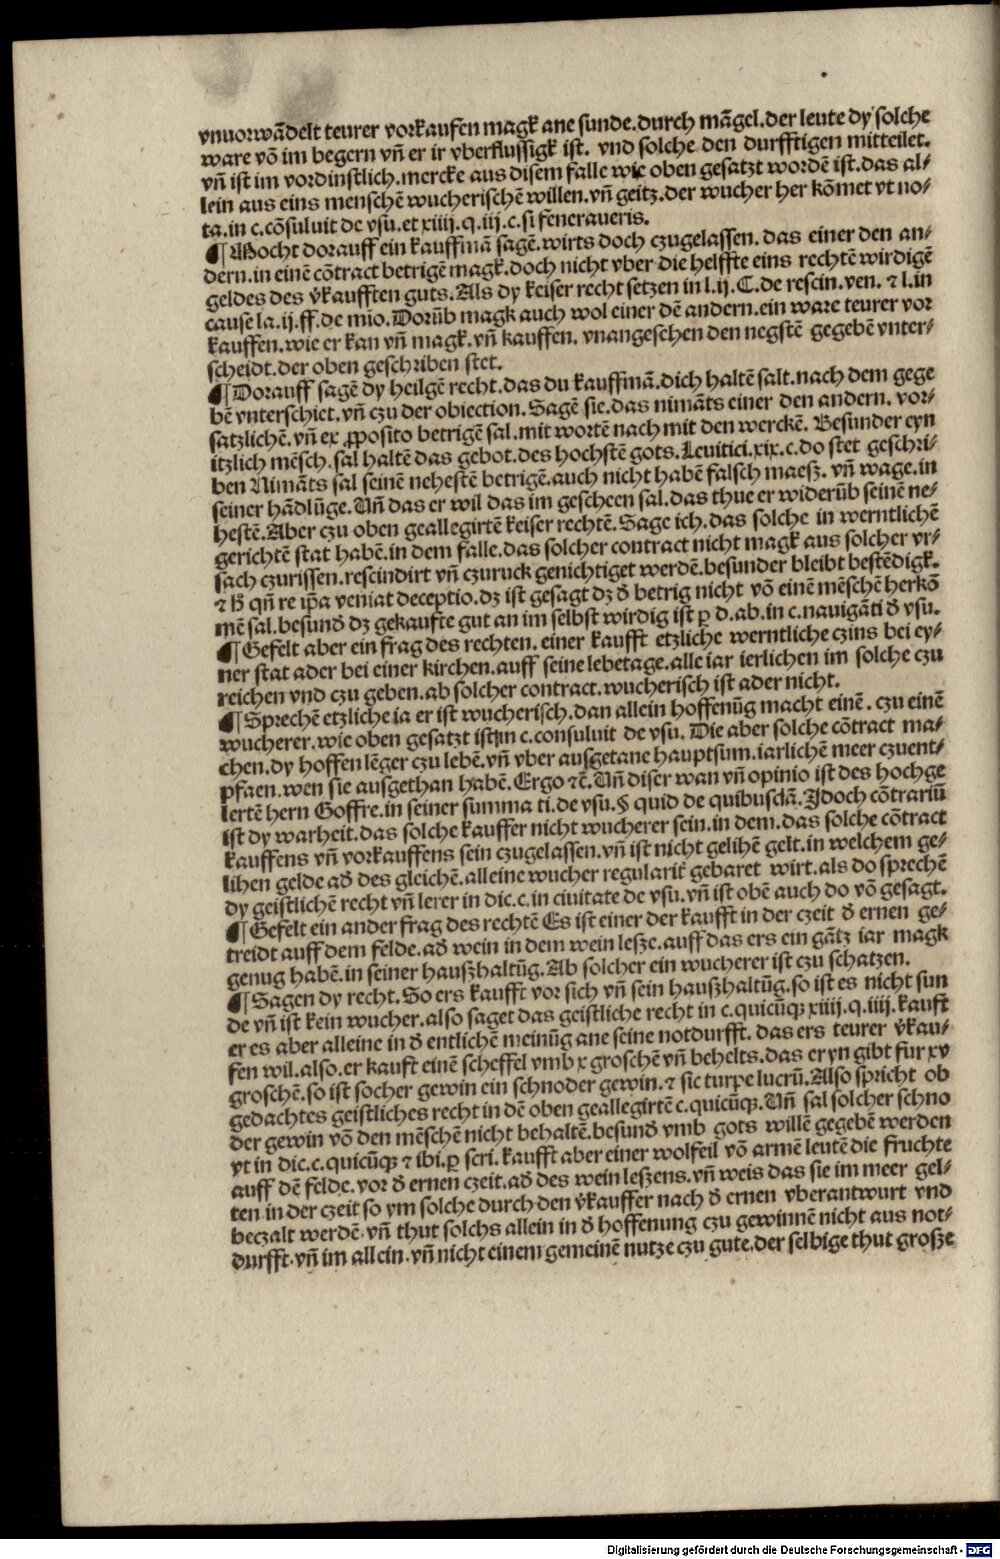 vnuorwādelt teurer vorkaufen magk ane sunde.durch māgel.der leute dy solche
ware vō im begern vn̄ er ir vberflussigk ist. vnd solche den durfftigen mitteilet.
vn̄ ist im vordinstlich.mercke aus disem falle wie oben gesatzt wordē ist.das al⸗
lein aus eins menschē wucherischē willen.vn̄ geitz.der wucher her kōmet vt no⸗
ta.in c.cōsuluit de vsu.et xiiij.q.iij.c.si feneraueris.
¶ Mocht dorauff ein kauffmā sagē.wirts doch czugelassen. das einer den an⸗
dern.in einē cōtract betrigē magk.doch nicht vber die helffte eins rechtē wirdigē
geldes des v̓kaufften guts.Als dy keiser recht setzen in l.ij.C.de rescin.ven. ⁊ l.in
cause la.ij.ff.de mio.Dorūb magk auch wol einer dē andern.ein ware teurer vor
kauffen.wie er kan vn̄ magk.vn̄ kauffen. vnangesehen den negstē gegebē vnter⸗
scheidt.der oben geschriben stet.
¶ Dorauff sagē dy heilgē recht.das du kauffmā.dich haltē salt.nach dem gege
bē vnterschiet.vn̄ czu der obiection.Sagē sie.das nimāts einer den andern. vor⸗
satzlichē.vn̄ ex ꝓposito betrigē sal.mit wortē nach mit den werckē. Besunder eyn
itzlich mēsch.sal haltē das gebot.des hochstē gots.Leuitici.xix.c.do stet geschri⸗
ben Nimāts sal seinē nehestē betrigē.auch nicht habē falsch maesz. vn̄ wage.in
seiner hādlūge.Vn̄ das er wil das im gescheen sal.das thue er widerūb seinē ne⸗
hestē.Aber czu oben geallegirtē keiser rechtē.Sage ich.das solche in werntlichē
gerichtē stat habē.in dem falle.das solcher contract nicht magk aus solcher vr⸗
sach czurissen.rescindirt vn̄ czuruck genichtiget werdē.besunder bleibt bestēdigk.
⁊ h̄ qn̄ re ip̄a veniat deceptio.dz ist gesagt dz d̓ betrig nicht vō einē mēschē herkō
mē sal.besund̓ dz gekaufte gut an im selbst wirdig ist p d.ab.in c.nauigāti d̓ vsu.
¶ Gefelt aber ein frag des rechten. einer kaufft etzliche werntliche czins bei ey⸗
ner stat ader bei einer kirchen.auff seine lebetage.alle iar ierlichen im solche czu
reichen vnd czu geben.ab solcher contract.wucherisch ist ader nicht.
¶ Sprechē etzliche ia er ist wucherisch.dan allein hoffenūg macht einē. czu einē
wucherer.wie oben gesatzt ist in c.consuluit de vsu. Die aber solche cōtract ma⸗
chen.dy hoffen lēger czu lebē.vn̄ vber ausgetane hauptsum.iarlichē meer czuent⸗
pfaen.wen sie ausgethan habē.Ergo ⁊c̄.Vn̄ diser wan vn̄ opinio ist des hochge
lertē hern Goffre.in seiner summa ti.de vsu.§ quid de quibusdā.Jdoch cōtrariū
ist dy warheit.das solche kauffer nicht wucherer sein.in dem.das solche cōtract
kauffens vn̄ vorkauffens sein czugelassen.vn̄ ist nicht gelihē gelt.in welchem ge⸗
lihen gelde ad̓ des gleichē.alleine wucher regularit̓ gebaret wirt.als do sprechē
dy geistlichē recht vn̄ lerer in dic.c.in ciuitate de vsu.vn̄ ist obē auch do vō gesagt.
¶ Gefelt ein ander frag des rechtē Es ist einer der kaufft in der czeit d̓ ernen ge⸗
treidt auff dem felde.ad̓ wein in dem wein lesze.auff das ers ein gātz iar magk
genug habē.in seiner hauszhaltūg.Ab solcher ein wucherer ist czu schatzen.
¶ Sagen dy recht.So ers kaufft vor sich vn̄ sein hauszhaltūg.so ist es nicht sun
de vn̄ ist kein wucher.also saget das geistliche recht in c.quicūqꝫ xiiij.q.iiij.kauft
er es aber alleine in d̓ entlichē meinūg ane seine notdurfft. das ers teurer v̓kau⸗
fen wil.also.er kauft einē scheffel vmb x groschē vn̄ behelts.das er yn gibt fur xv
groschē.so ist socher gewin ein schnoder gewin.⁊ sic turpe lucrū.Also spricht ob
gedachtes geistliches recht in dē oben geallegirtē c.quicūqꝫ.Vn̄ sal solcher schno
der gewin vō den mēschē nicht behaltē.besund̓ vmb gots willē gegebē werden
vt in dic.c.quicūqꝫ ⁊ ibi.p scri.kaufft aber einer wolfeil vō armē leutē die fruchte
auff dē felde.vor d̓ ernen czeit.ad̓ des wein leszens.vn̄ weis das sie im meer gel⸗
ten in der czeit so ym solche durch den v̓kauffer nach d̓ ernen vberantwurt vnd
beczalt werdē.vn̄ thut solchs allein in d̓ hoffenung czu gewinnē nicht aus not⸗
durfft.vn̄ im allein.vn̄ nicht einem gemeinē nutze czu gute.der selbige thut grosze
Digitalisierung gefördert durch die Deutsche Forschungsgemeinschaft - DFG